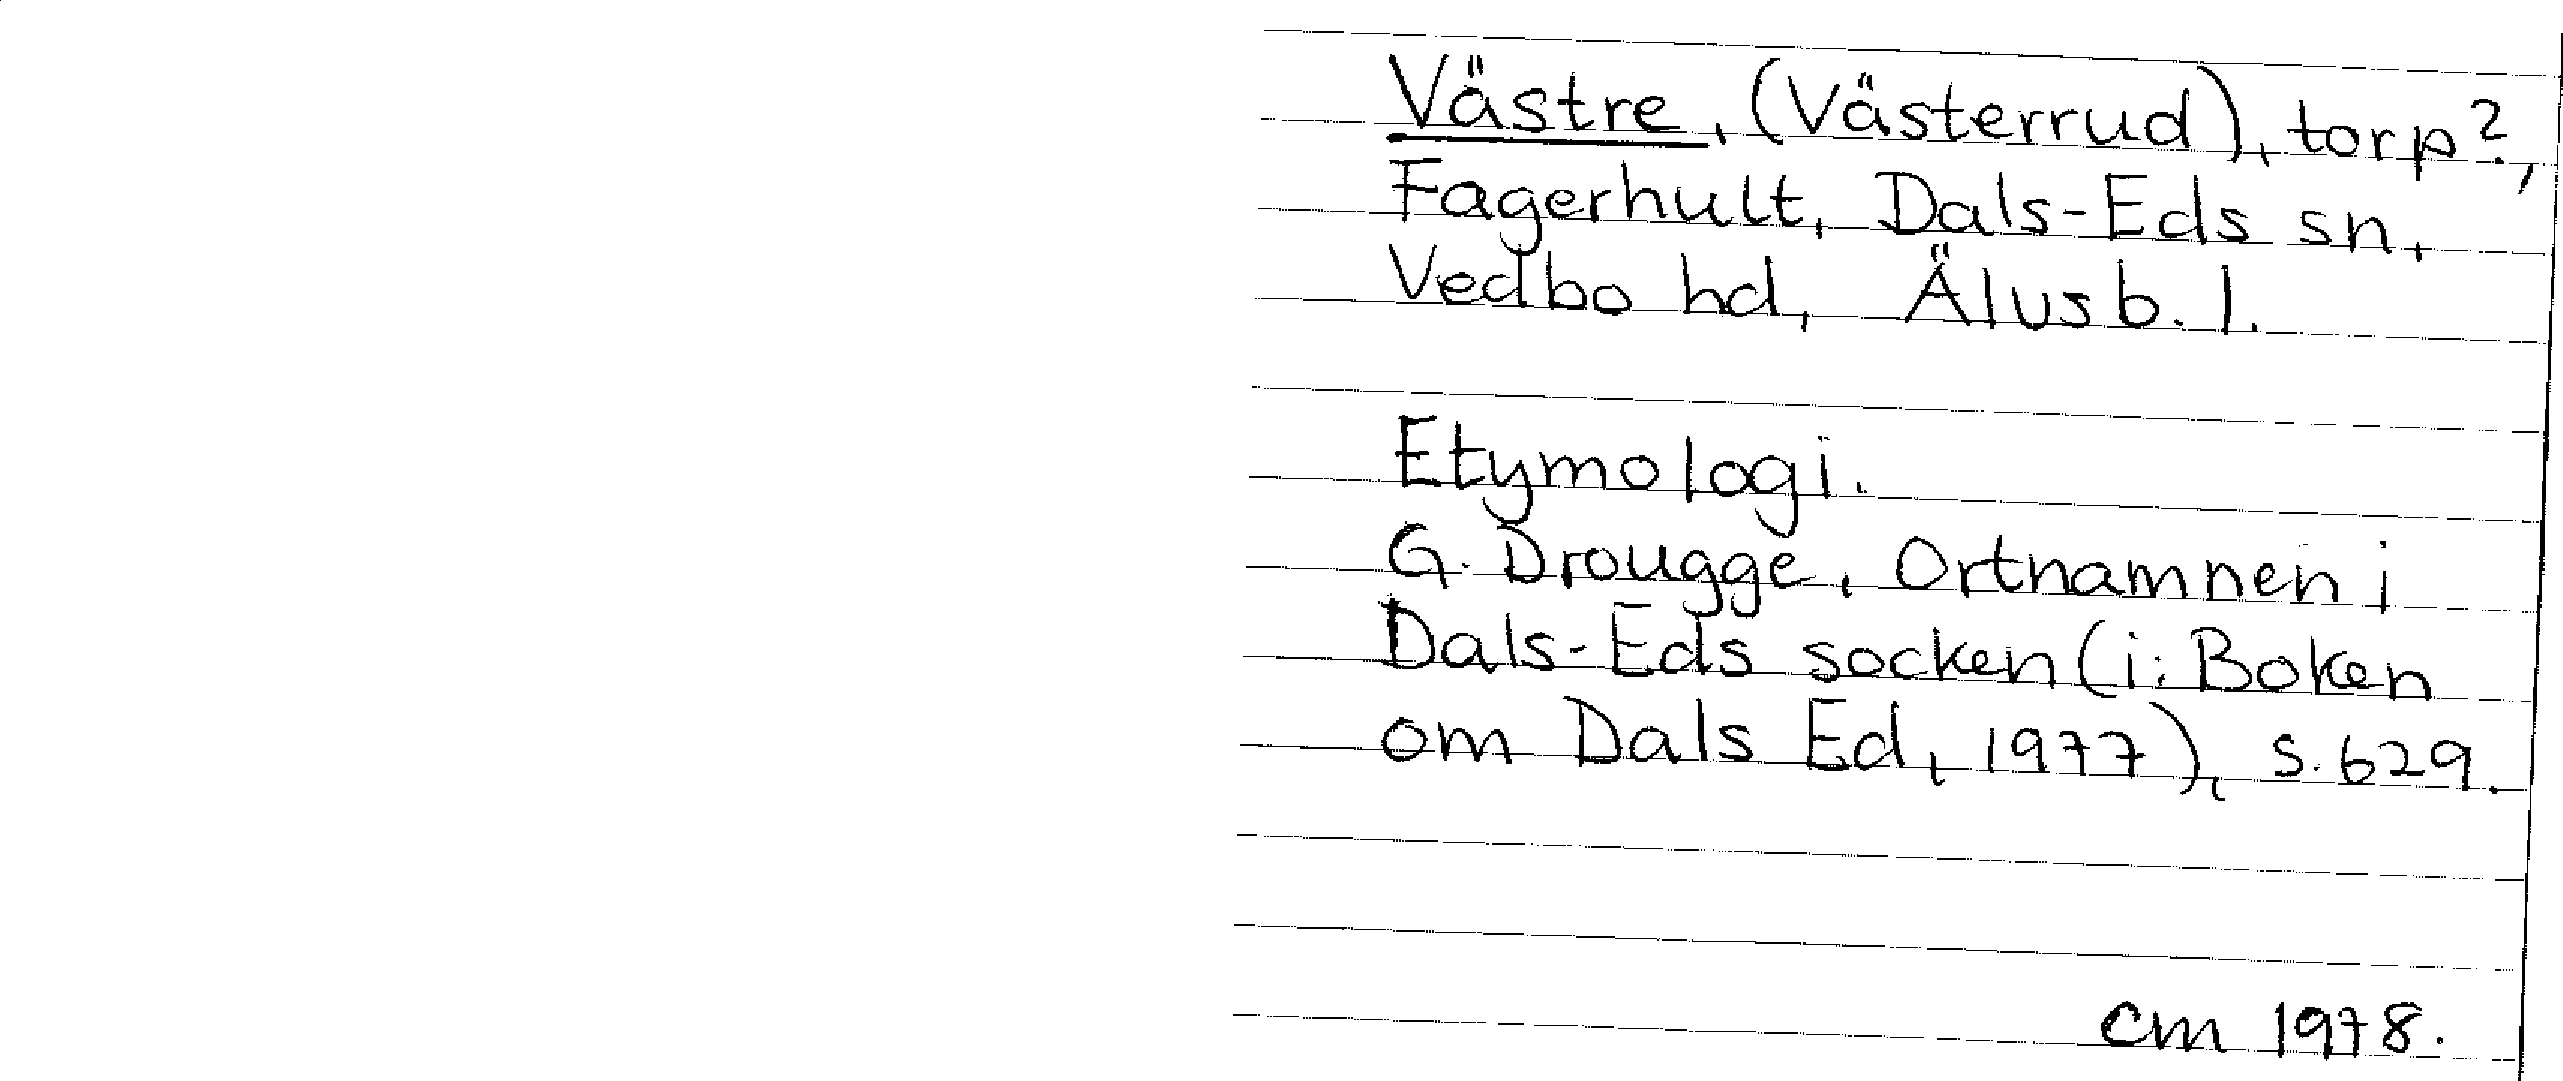 Västre, (Västerrud), torp?,
Fagerhult, Dals-Eds sn,
Vedbo hd, Älvsb. l.
Etymologi.
G. Drougge, Ortnamnen i
Dals-Eds socken (i: Boken
om Dals Ed, 1977), s. 629.
CM 1978.